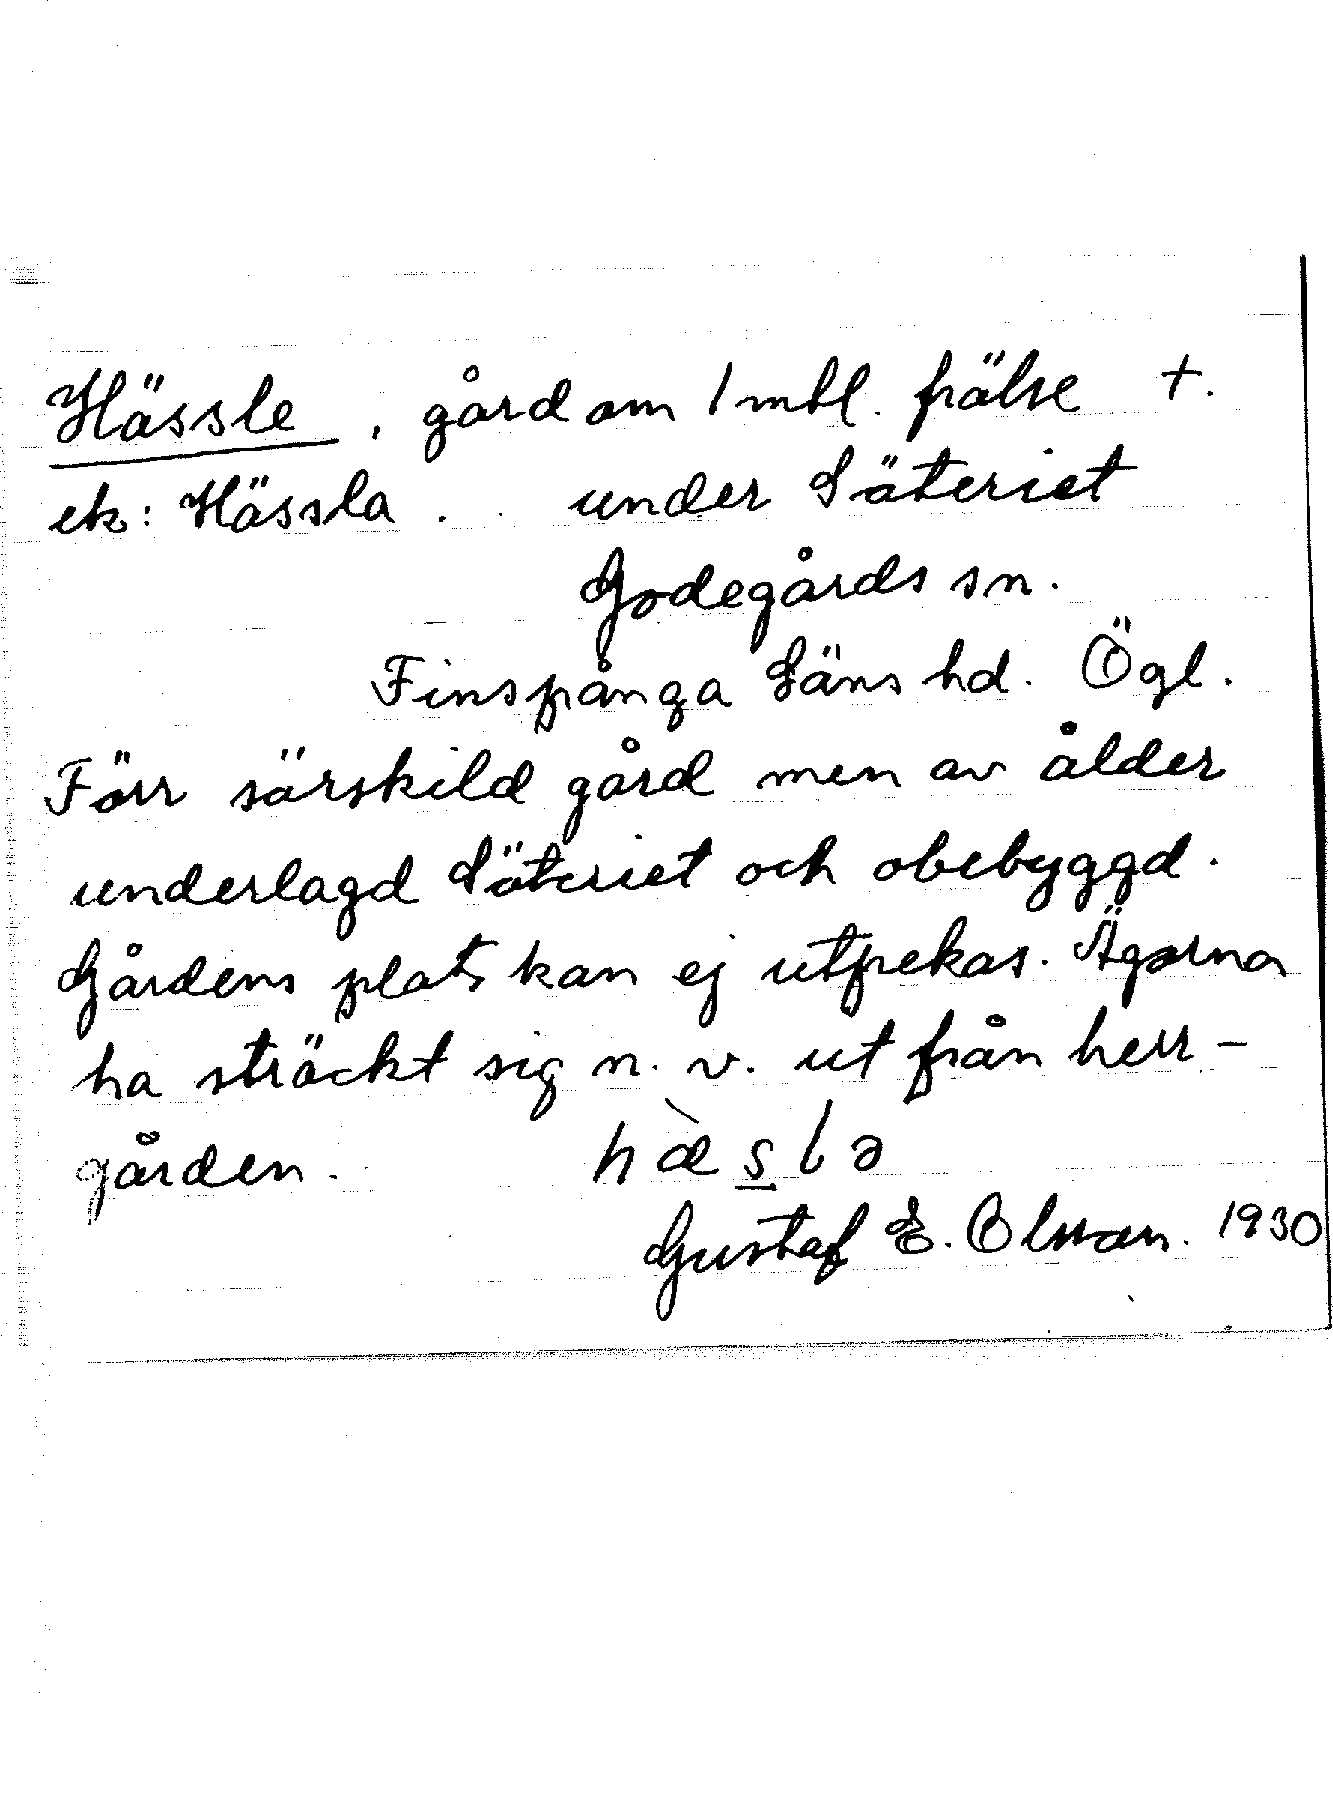 Hässle, gård om 1 mtl. frälse +.
ek: Hässla. under Säteriet
Godegårds sn.
Finspånga Läns hd. Ögl.
Förr särskild gård men av ålder
underlagd Säteriet och obebyggd.
Gårdens plats kan ej utpekas. Ägorna
ha sträckt sig n. v. ut från herr-
gården. hæ̀s̲lə
Gustaf E. Olsson. 1930